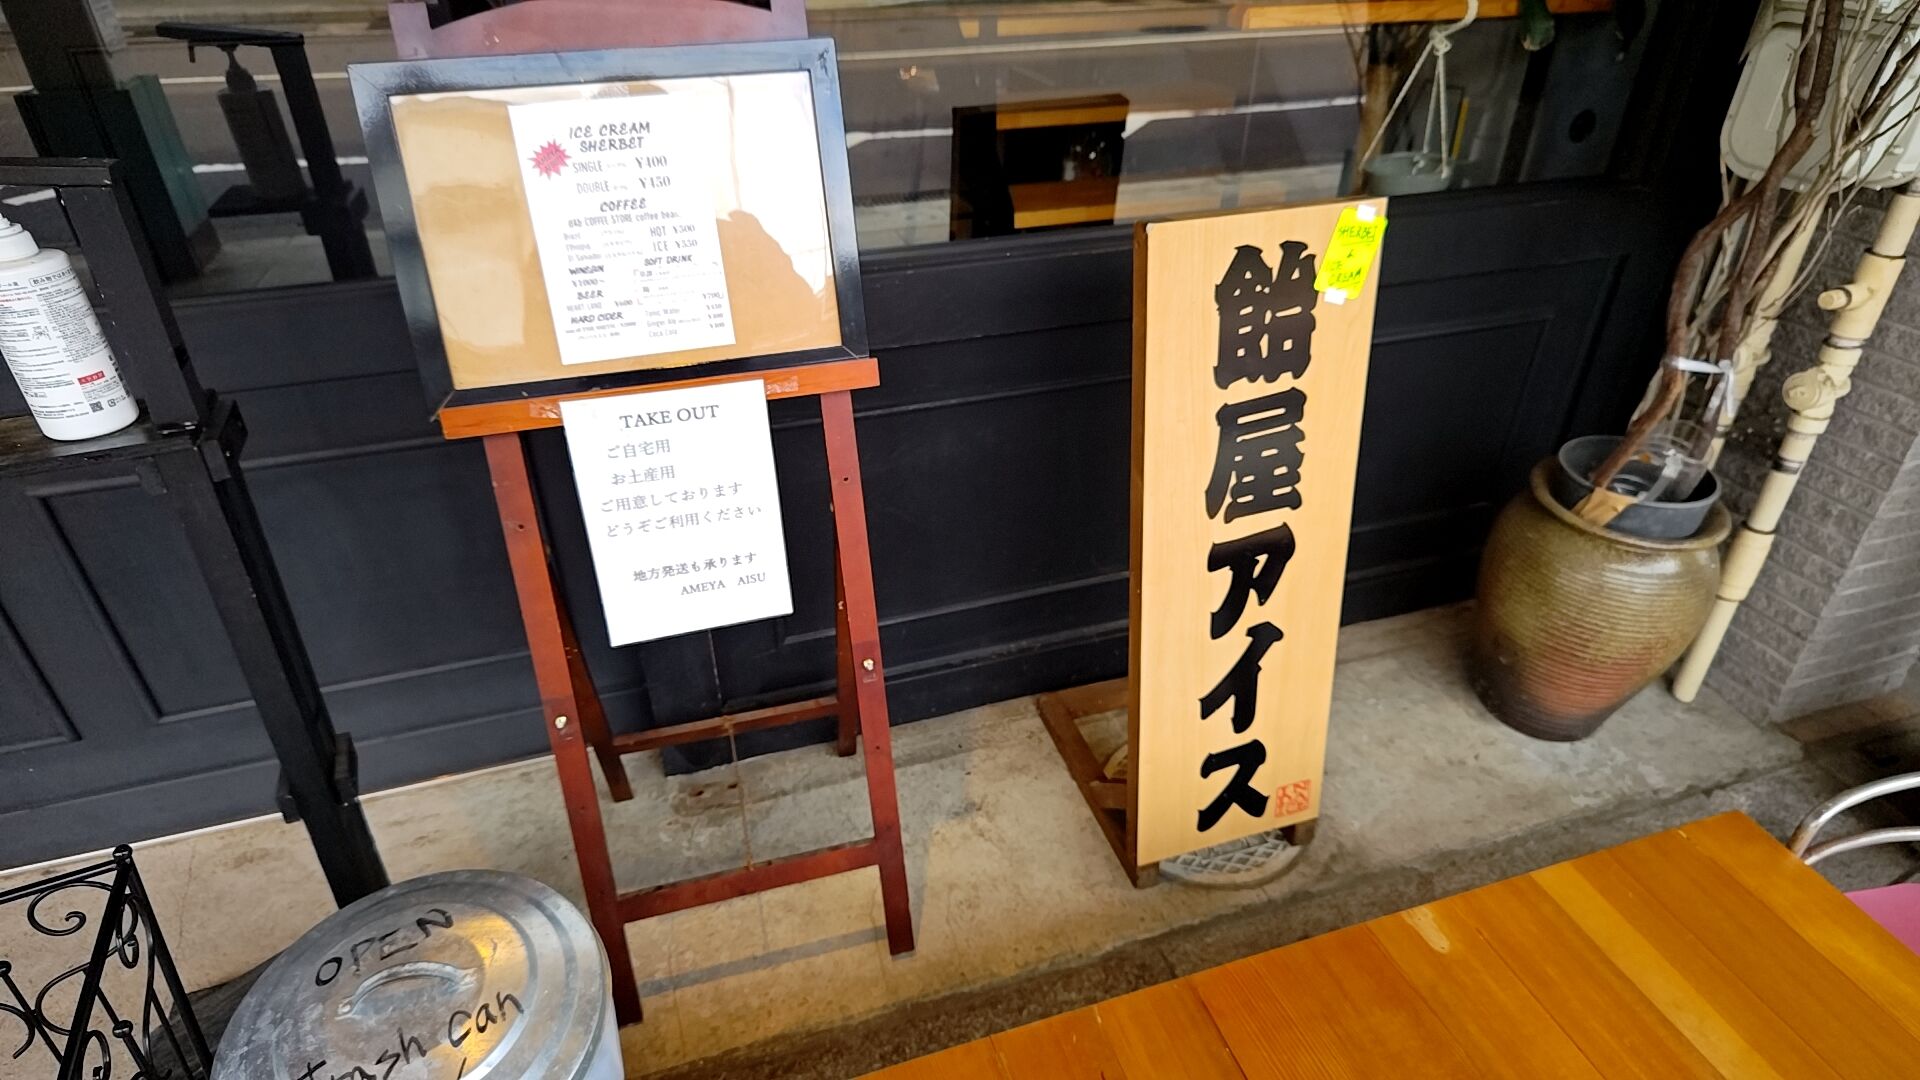 ICE CREAM
SHERBET
SINGLE ¥400
DOUBLE ¥450
COFFEE
COFFEE STORE coffee bean
HOT ¥500
ICE ¥550
SOFT DRINK
¥1000~
BEER
HEART LAND ¥600
HARD CIDER
Tonic Water
Ginger Ale
Coca Cola
TAKE OUT
ご自宅用
お土産用
ご用意しております
どうぞご利用ください
地方発送も承ります
AMEYA AISU
飴屋アイス
SHERBET
&
ICE
CREAM
OPEN
trash can